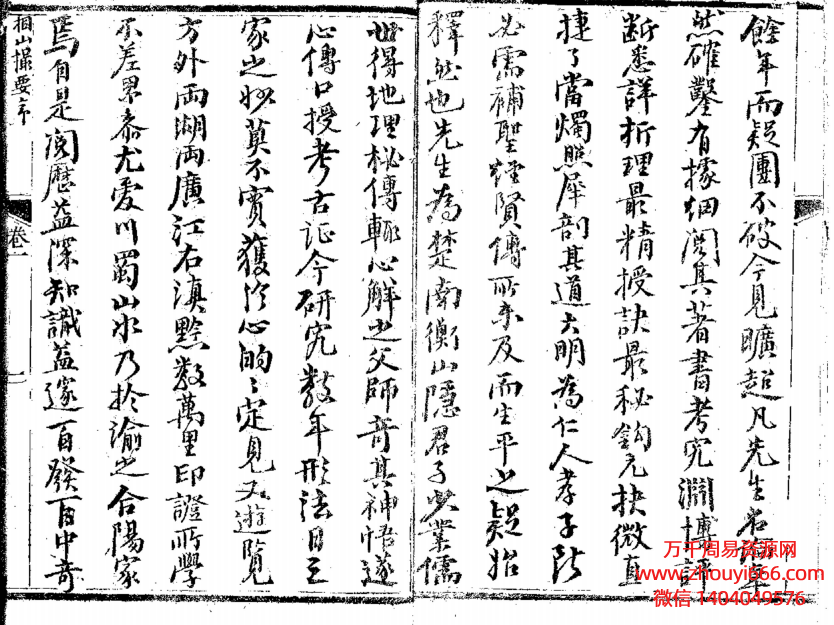 餘年而疑團不破今見曠超凡先生
然確鑿有據細閱其著書考究淵博評
斷悉詳析理最精授訣最秘鈎元抉微直
捷了當燭照犀剖其道大明為仁人孝子所
必需補聖經賢傳所未及而生平之疑始
釋然也先生為楚南衡山隱君子也業儒
世得地理秘傳輒心解之父師奇其神悟遂
心傳口授考古証今研究數年形法日三
家之妙莫不實獲於心的的定見又遊覽
方外兩湖兩廣江右滇黔數萬里印證所學
不差累黍尤愛川蜀山水乃於渝之合陽家
焉自是閱歷益深知識益邃百發百中奇
相山撮要序
卷一
万千周易资源网
www.zhouyi666.com
微信 1404049576